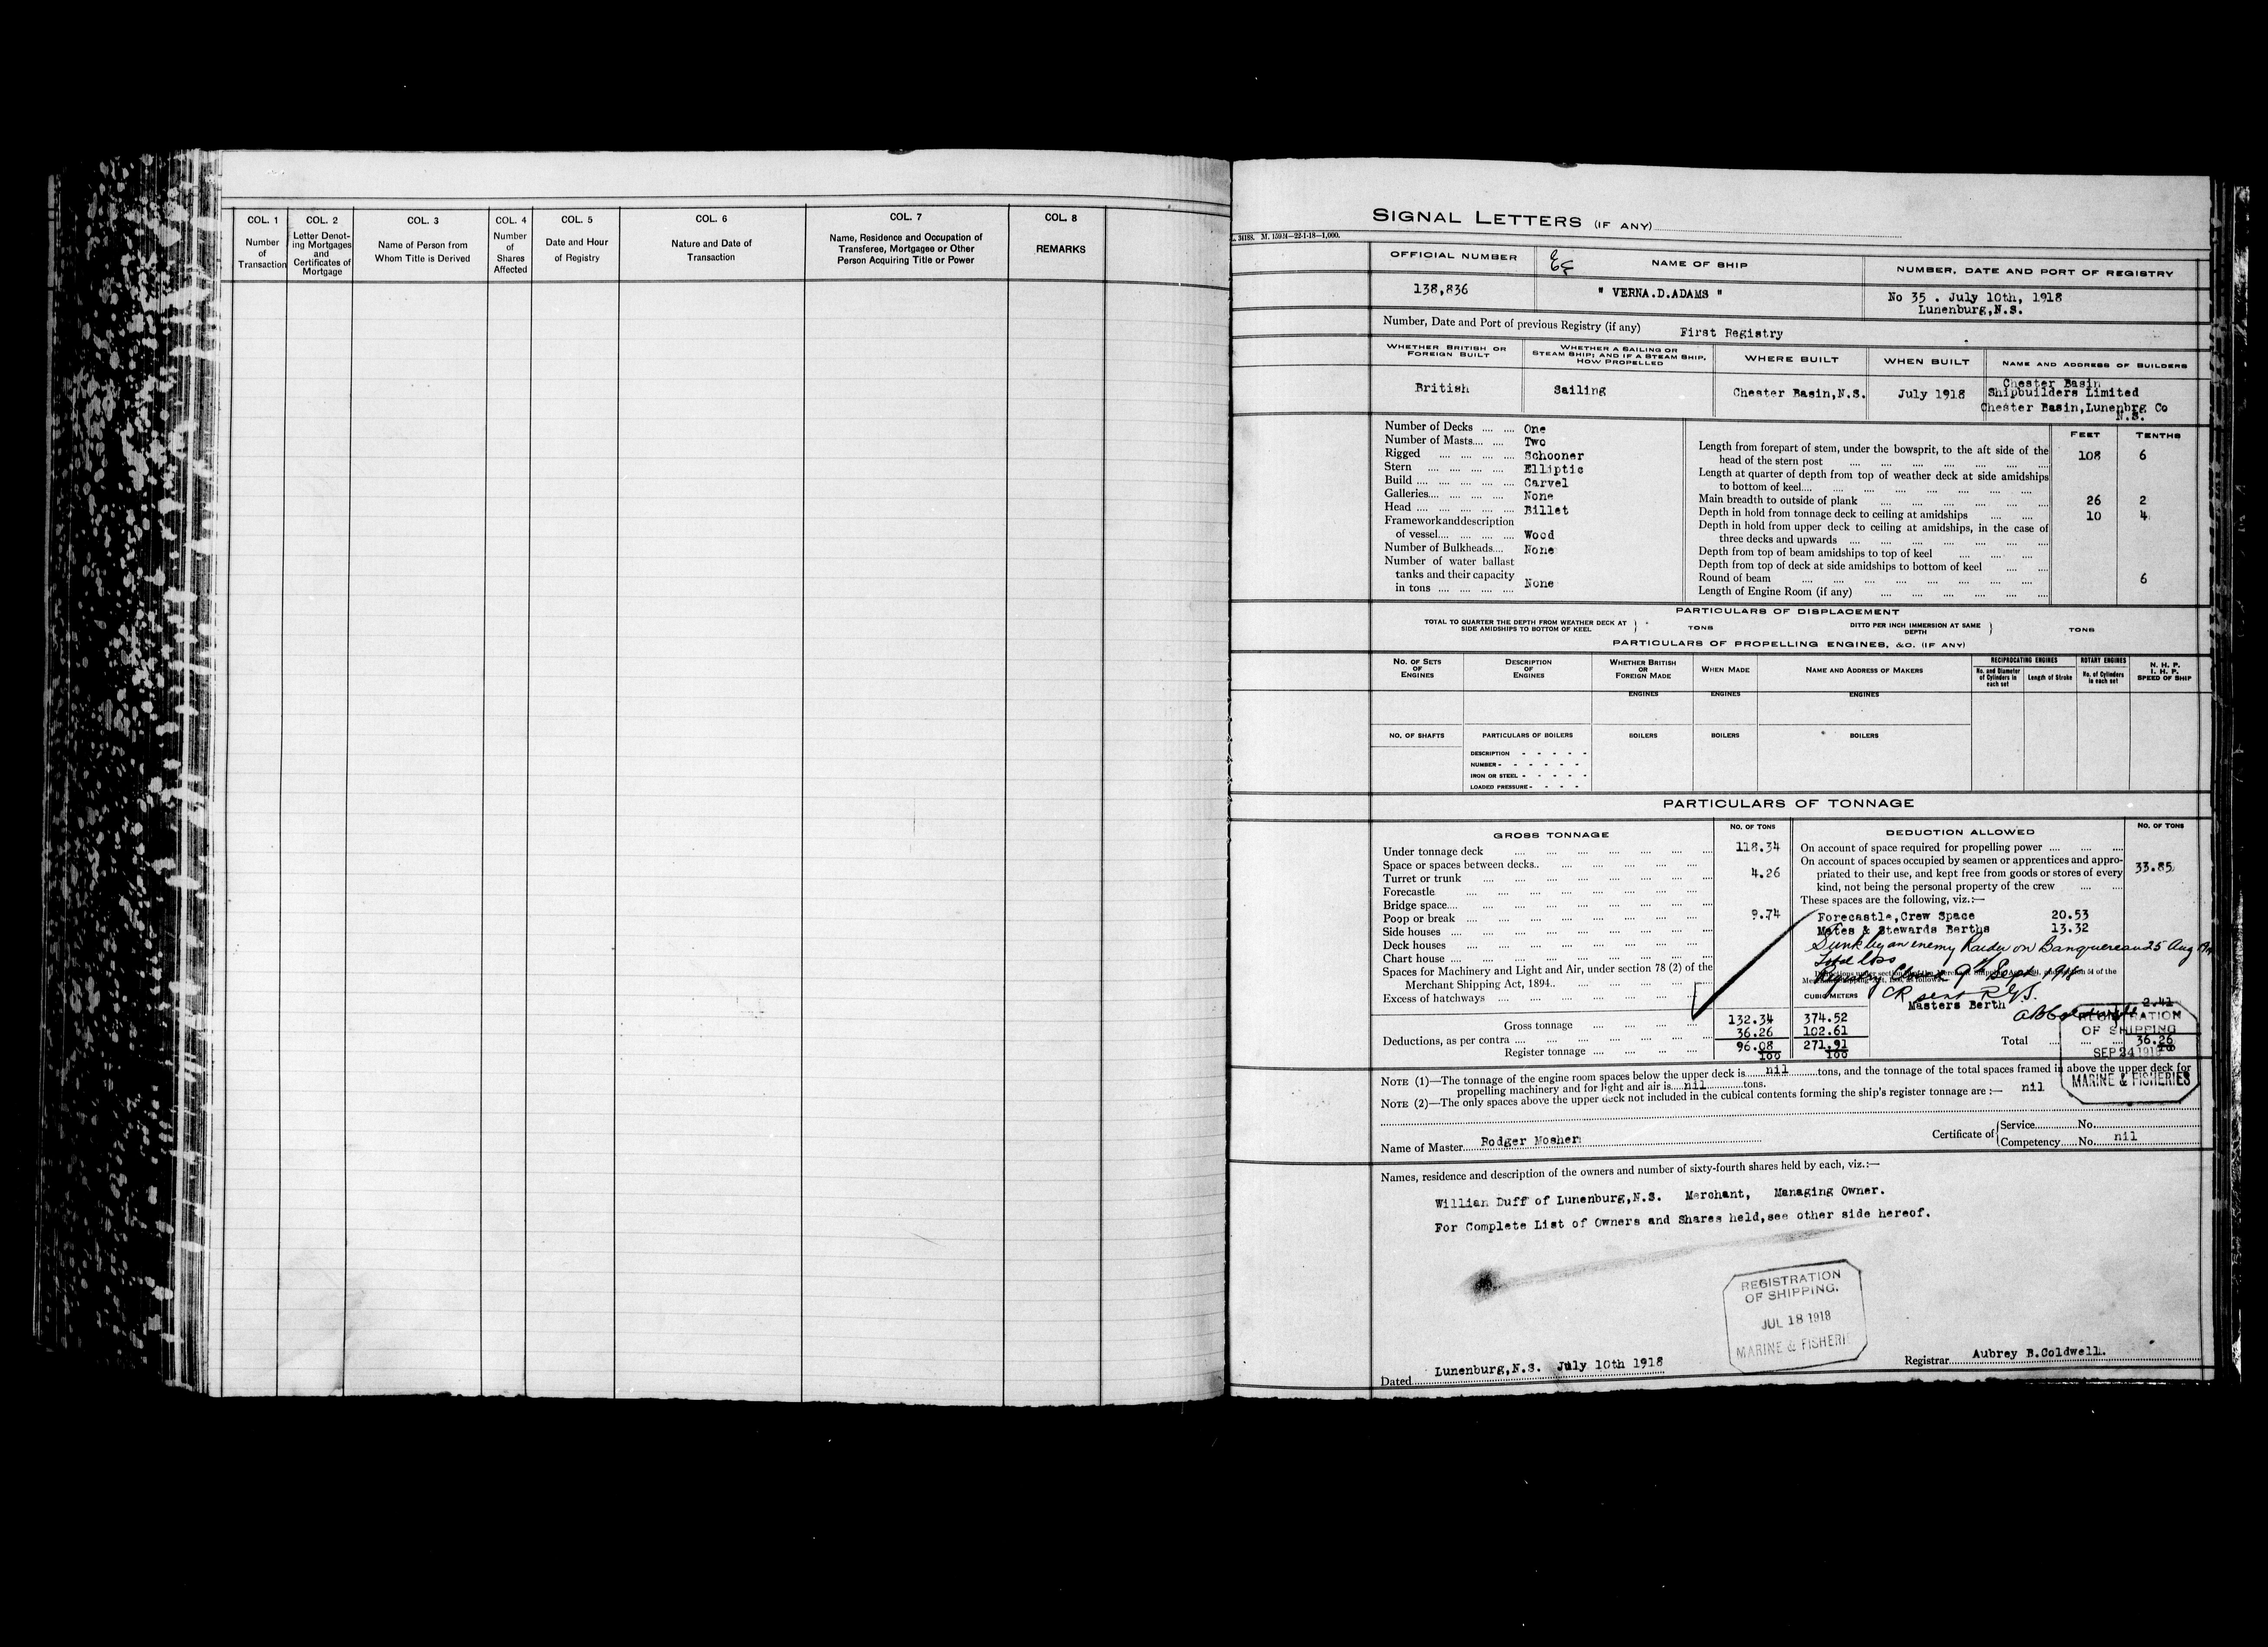 COL. 1
Number
of
Transaction
COL. 2
Letter Denot-
ing Mortgages
and
Certificates of
Mortgage
COL. 3
Name of Person from
Whom Title is Derived
COL. 4
Number
of
Shares
Affected
COL. 5
Date and Hour
of Registry
COL. 6
Nature and Date of
Transaction
COL. 7
Name, Residence and Occupation of
Transferee, Mortgagee or Other
Person Acquiring Title or Power
COL. 8
REMARKS
SIGNAL LETTERS (IF ANY)
34188. M. 15924—22-1-18—1,000.
OFFICIAL NUMBER
NAME OF SHIP
NUMBER, DATE AND PORT OF REGISTRY
138,836
" VERNA.D.ADAMS "
No 35 . July 10th, 1918
Lunenburg,N.S.
Number, Date and Port of previous Registry (if any) First Registry
WHETHER BRITISH OR
FOREIGN BUILT
WHETHER A SAILING OR
STEAM SHIP; AND IF A STEAM SHIP,
HOW PROPELLED
WHERE BUILT
WHEN BUILT
NAME AND ADDRESS OF BUILDERS
British
Sailing
Chester Basin,N.S.
July 1918
Chester Basin
Shipbuilders Limited
Chester Basin,Lunenbrg Co
N.S.
Number of Decks .... .... One
Number of Masts.... .... Two
Rigged .... .... .... .... Schooner
Stern .... .... .... .... Elliptic
Build .... .... .... .... .... Carvel
Galleries.... .... .... .... None
Head .... .... .... .... .... Billet
Framework and description
of vessel.... .... .... .... Wood
Number of Bulkheads.... None
Number of water ballast
tanks and their capacity
in tons .... .... .... .... None
FEET TENTHS
Length from forepart of stem, under the bowsprit, to the aft side of the
head of the stern post 108 6
Length at quarter of depth from top of weather deck at side amidships
to bottom of keel....
Main breadth to outside of plank 26 2
Depth in hold from tonnage deck to ceiling at amidships 10 4
Depth in hold from upper deck to ceiling at amidships, in the case of
three decks and upwards
Depth from top of beam amidships to top of keel
Depth from top of deck at side amidships to bottom of keel
Round of beam 6
Length of Engine Room (if any)
PARTICULARS OF DISPLACEMENT
TOTAL TO QUARTER THE DEPTH FROM WEATHER DECK AT
SIDE AMIDSHIPS TO BOTTOM OF KEEL
TONS
DITTO PER INCH IMMERSION AT SAME
DEPTH
TONS
PARTICULARS OF PROPELLING ENGINES, &C. (IF ANY)
NO. OF SETS
OF
ENGINES
DESCRIPTION
OF
ENGINES
WHETHER BRITISH
OR
FOREIGN MADE
WHEN MADE
NAME AND ADDRESS OF MAKERS
RECIPROCATING ENGINES
No. and Diameter
of Cylinders in
each set
Length of Stroke
ROTARY ENGINES
No. of Cylinders
in each set
N. H. P.
I. H. P.
SPEED OF SHIP
ENGINES
ENGINES
ENGINES
NO. OF SHAFTS
PARTICULARS OF BOILERS
BOILERS
BOILERS
BOILERS
DESCRIPTION
NUMBER
IRON OR STEEL
LOADED PRESSURE
PARTICULARS OF TONNAGE
GROSS TONNAGE
NO. OF TONS
Under tonnage deck 118.34
Space or spaces between decks..
Turret or trunk 4.26
Forecastle
Bridge space....
Poop or break 9.74
Side houses
Deck houses
Chart house
Spaces for Machinery and Light and Air, under section 78 (2) of the
Merchant Shipping Act, 1894..
Excess of hatchways
CUBIC METERS
Gross tonnage 132.34 374.52
Deductions, as per contra 36.26 102.61
Register tonnage 96.08 271.91
100 100
DEDUCTION ALLOWED
NO. OF TONS
On account of space required for propelling power
On account of spaces occupied by seamen or apprentices and appro-
priated to their use, and kept free from goods or stores of every
kind, not being the personal property of the crew 33.85
These spaces are the following, viz.:—
Forecastle,Crew Space 20.53
Mates & Stewards Berths 13.32
Sunk by an enemy Raider on Banquereau 25 Aug
Total loss
Registry Closed 9th Sept 918
CR sent RGS.
Masters Berth 2.41
Total 36.26
100
REGISTRATION
OF SHIPPING
SEP 24 1918
MARINE & FISHERIES
NOTE (1)—The tonnage of the engine room spaces below the upper deck is nil tons, and the tonnage of the total spaces framed in above the upper deck for
propelling machinery and for light and air is nil tons.
NOTE (2)—The only spaces above the upper deck not included in the cubical contents forming the ship's register tonnage are :— nil
Name of Master Rodger Mosher
Certificate of Service No.
Competency No. nil
Names, residence and description of the owners and number of sixty-fourth shares held by each, viz.:—
Willian Duff of Lunenburg,N.S. Merchant, Managing Owner.
For Complete List of Owners and Shares held,see other side hereof.
REGISTRATION
OF SHIPPING.
JUL 18 1918
MARINE & FISHERI
Dated Lunenburg,N.S. July 10th 1918
Registrar Aubrey B.Coldwell.